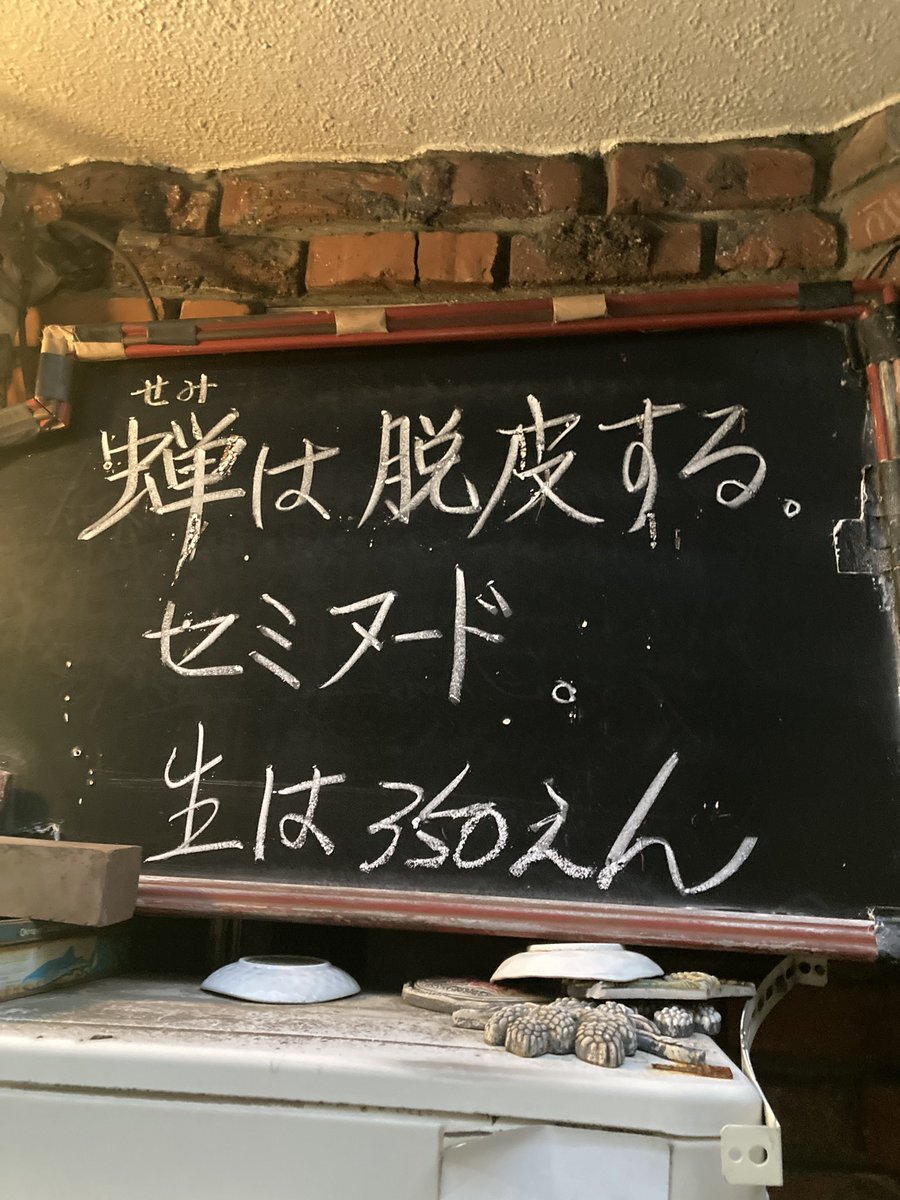 せみ
蝉は脱皮する。
セミヌード。
生は350えん